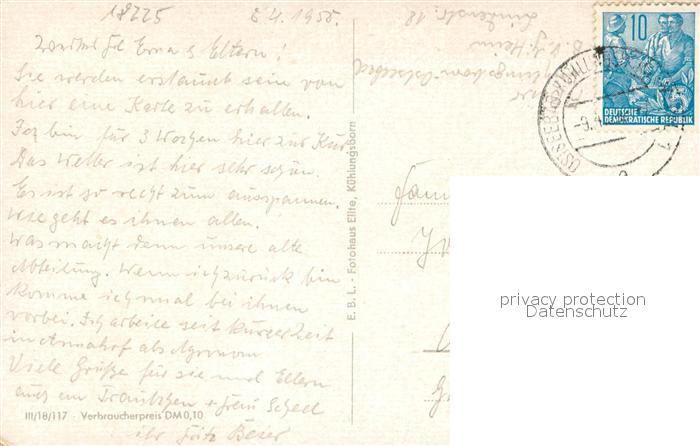 18225
8.4.1955.
Erna & Eltern!
Sie werden erstaunt sein von
hier eine Karte zu erhalten.
Ich bin für 3 Wochen hier zur Kur
Das Wetter ist hier sehr schön.
Es ist so recht zum ausspannen.
Wie geht es ihnen allen.
Was macht denn unsere alte
Abteilung. Wenn ich zurück bin
komme ich mal bei ihnen
vorbei. Ich arbeite seit kurzer Zeit
in als Agronom
Viele Grüße für sie und Eltern
auch an + Frau
ihr Fritz
III/18/117 · Verbraucherpreis DM 0,10
E. B. L. - Fotohaus Elite, Kühlungsborn
Lindenstr. 18
10
5
DEUTSCHE
DEMOKRATISCHE REPUBLIK
OSTSEEBAD KÜHLUNGSBORN
privacy protection
Datenschutz